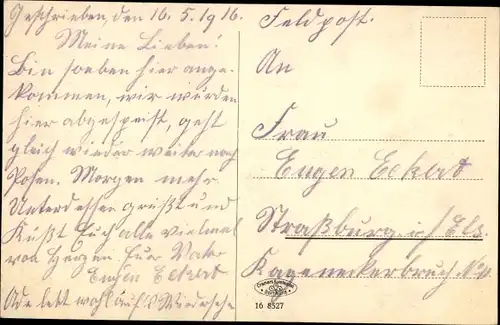 Geschrieben, den 16. 5. 1916.
Meine Lieben!
Bin soeben hier ange-
kommen, wir wurden
hier abgespeist, geht
gleich wieder weiter nach
Posen. Morgen mehr
Unterdessen grüßt und
Küßt Euch alle vielmal
von Herzen. Euer Vater
Eugen Eckert
Ade lebt wohl auf's Wiedersehe
Feldpost.
An
Frau
Eugen Eckert
Straßburg i/ Els.
Kageneckerbruch
16 8527